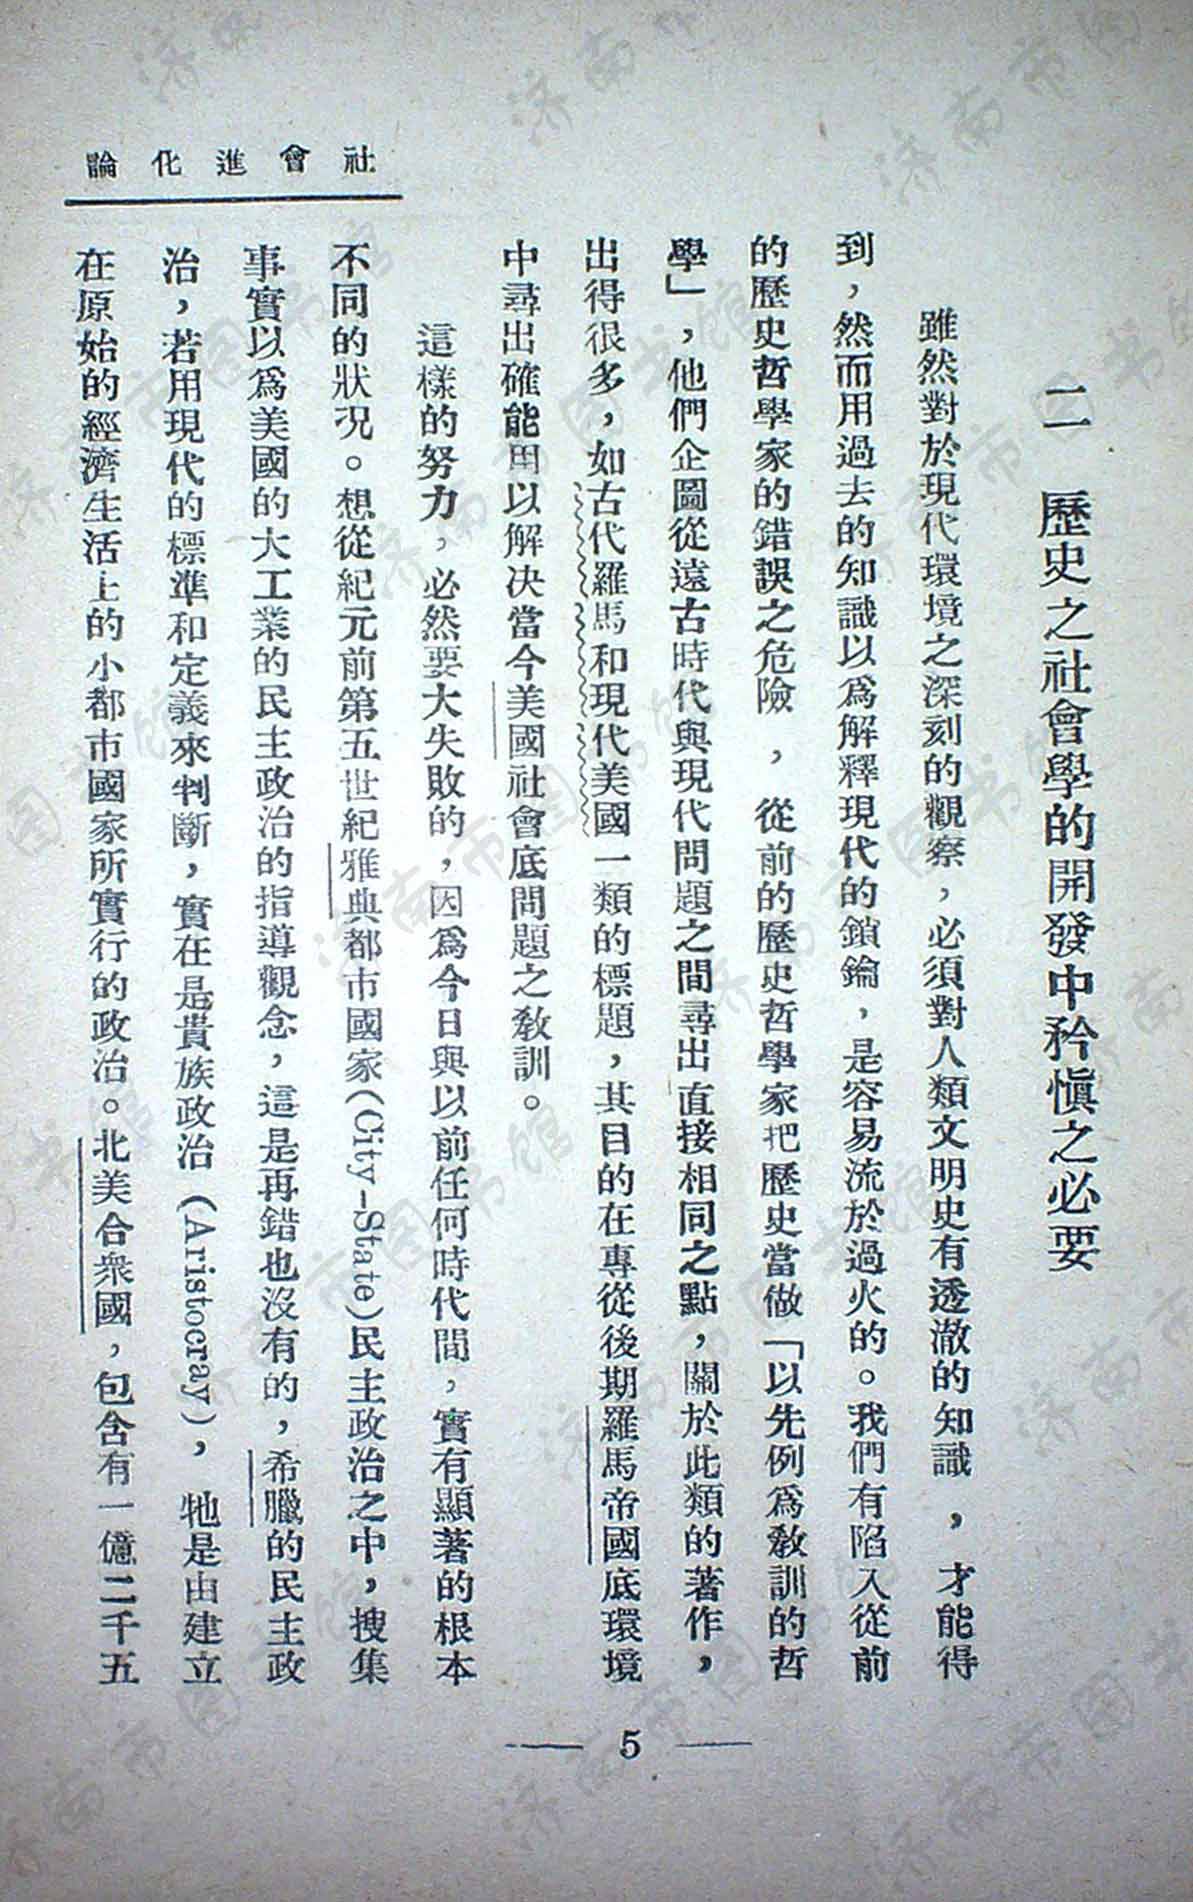 社會進化論
二　歷史之社會學的開發中矜愼之必要
雖然對於現代環境之深刻的觀察，必須對人類文明史有透澈的知識，才能得
到，然而用過去的知識以爲解釋現代的鎖鑰，是容易流於過火的。我們有陷入從前
的歷史哲學家的錯誤之危險，從前的歷史哲學家把歷史當做「以先例爲敎訓的哲
學」，他們企圖從遠古時代與現代問題之間尋出直接相同之點，關於此類的著作，
出得很多，如古代羅馬和現代美國一類的標題，其目的在專從後期羅馬帝國底環境
中尋出確能用以解决當今美國社會底問題之敎訓。
這樣的努力，必然要大失敗的，因爲今日與以前任何時代間，實有顯著的根本
不同的狀况。想從紀元前第五世紀雅典都市國家(City-State)民主政治之中，搜集
事實以爲美國的大工業的民主政治的指導觀念，這是再錯也沒有的，希臘的民主政
治，若用現代的標準和定義來判斷，實在是貴族政治(Aristocray)，牠是由建立
在原始的經濟生活上的小都市國家所實行的政治。北美合衆國，包含有一億二千五
— 5 —
济南市图书馆